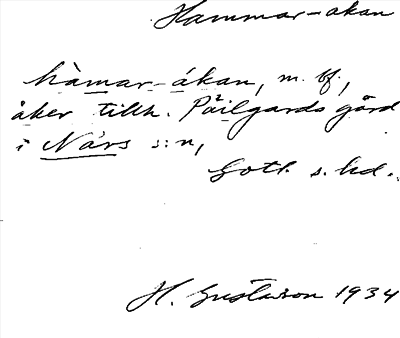 Hammar-åkan
hàmar-ákan, m. bf.,
åker tillh. Päilgards gård
i Närs s:n,
Gotl. s. hd.
H. Gustavson 1934